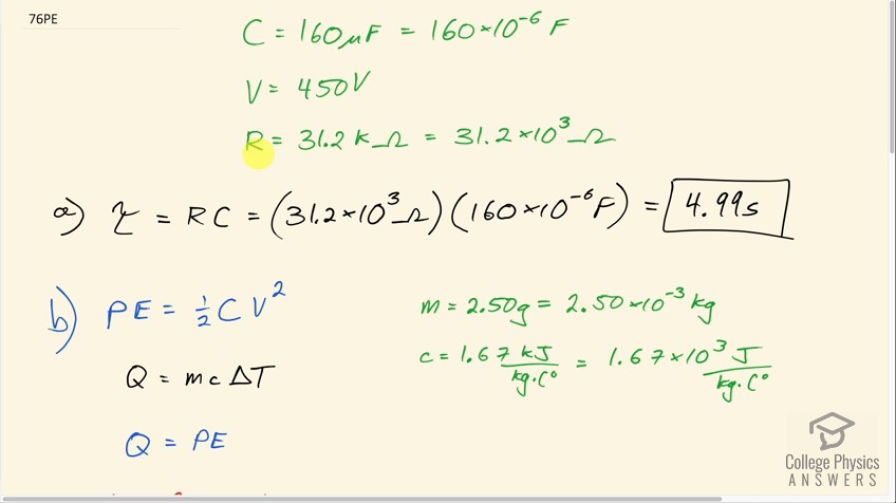 76PE
C = 160μF = 160×10⁻⁶ F
V = 450V
R = 31.2 kΩ = 31.2×10³ Ω
a) τ = RC = (31.2×10³Ω)(160×10⁻⁶F) = 4.99s
b) PE = ½CV²
m = 2.50g = 2.50×10⁻³ kg
c = 1.67 kJ/kg·C° = 1.67×10³ J/kg·C°
Q = mcΔT
Q = PE
College Physics
ANSWERS